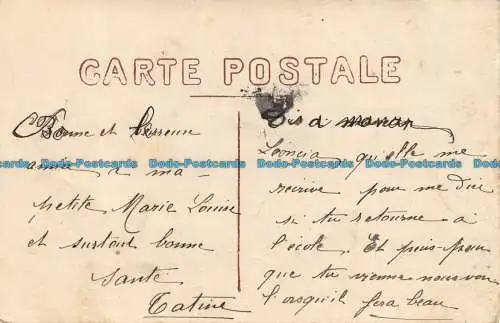 CARTE POSTALE
Bonne et
a ma
petite Marie Louise
et surtout bonne
santé
Tatine
Dis a maman
Léoncia qu'elle me
recrive pour me dire
si tu retourne à
l'école. Et puis pour
que tu vienne nous voir
l'orsqu'il fera beau
Dado-Postcards Dado-Postcards Dado-Postcards Dado-Postcards Dado-Postcards